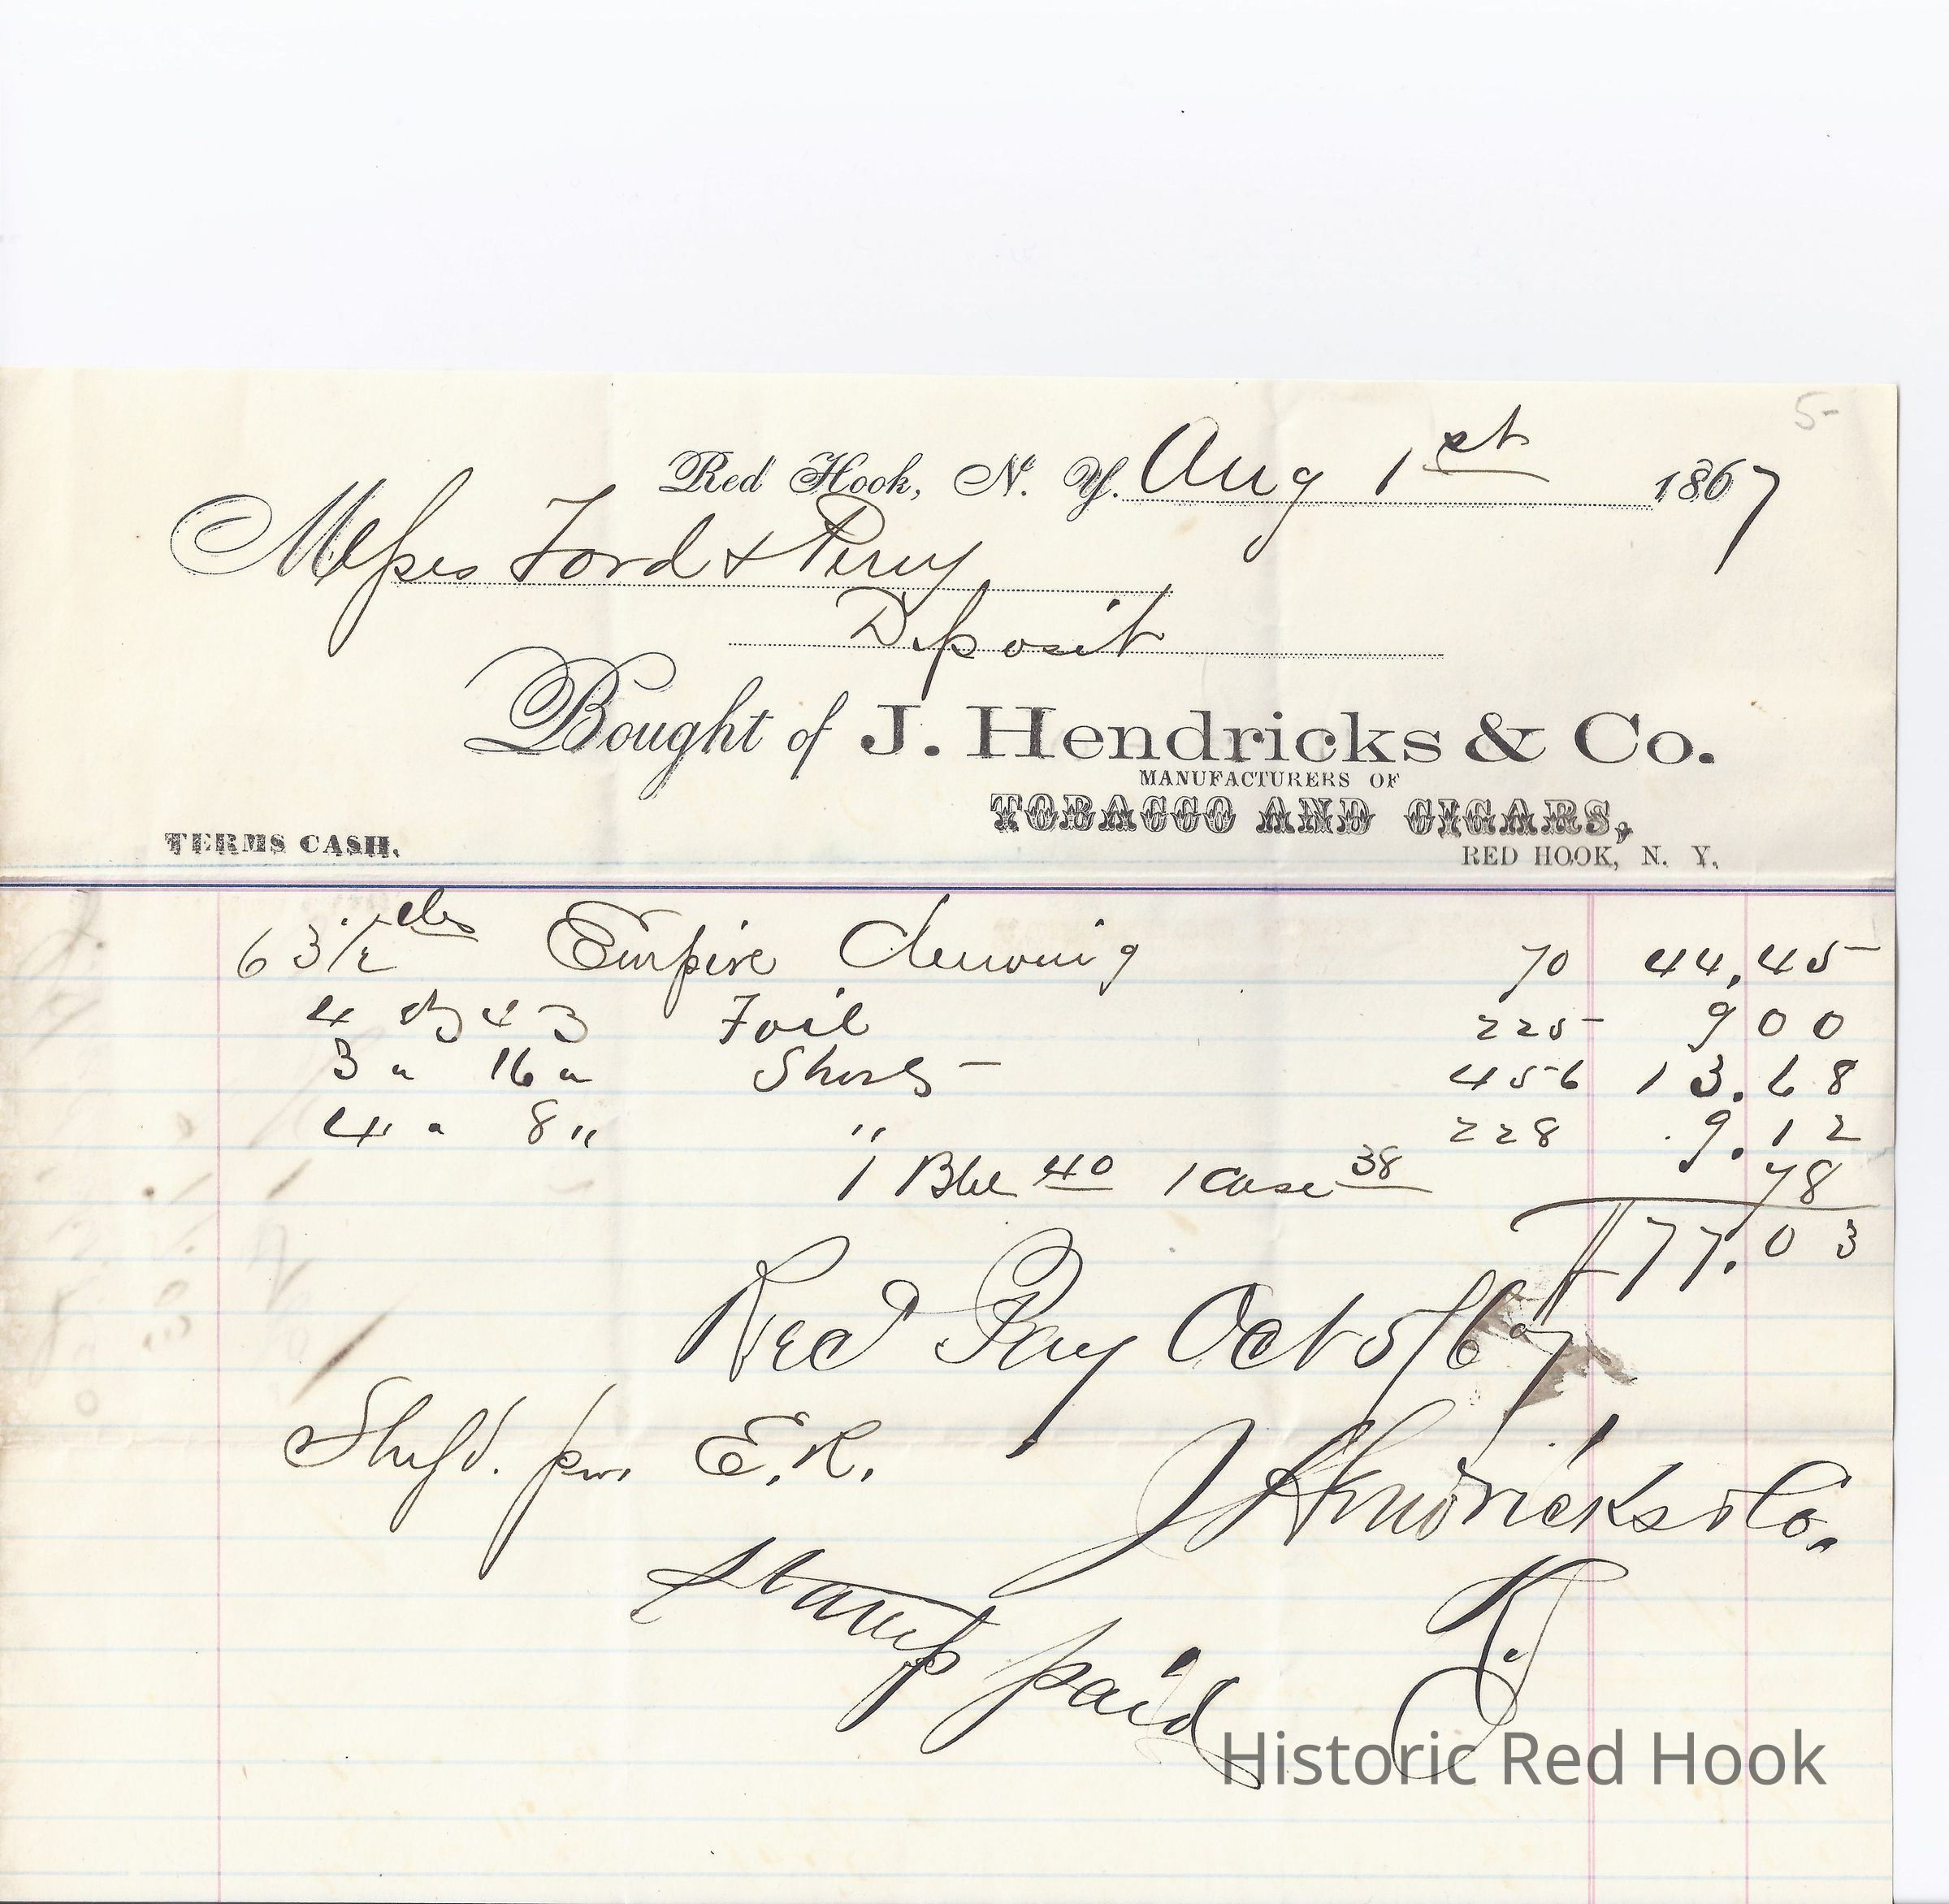 5-
Red Hook, N. Y. Aug 1st 1867
Messrs Ford & Perry
Deposit
Bought of J. Hendricks & Co.
MANUFACTURERS OF
TOBACCO AND CIGARS,
TERMS CASH.
RED HOOK, N. Y.
63 1/2 lbs Empire Chewing 70 44.45
4 3 Foil 225 900
3 " 16 " Shorts 456 13.68
4 " 8 " " 228 9.12
1 Bbl 40 1 Case 38 78
$77.03
Recd Pay Oct 5/67
Shipd. per E.R. J Hendricks & Co.
Stamp paid
Historic Red Hook